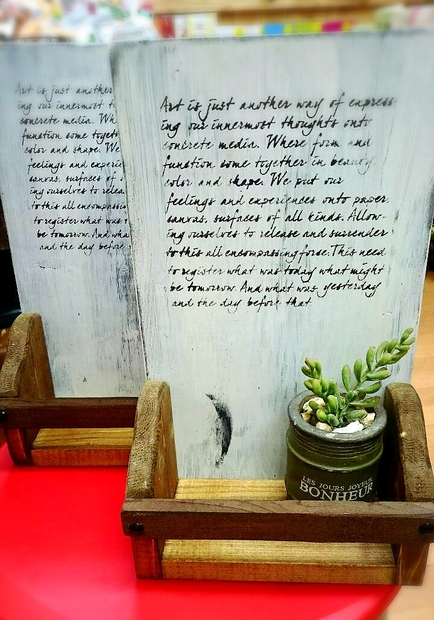 Art is just another
ing our innermost t
concrete media. Wh
function come togeth
color and shape. We
feelings and experie
canvas, surfaces of a
ing ourselves to relea
to this all encompassin
to register what was t
be tomorrow. And wha
and the day before
Art is just another way of express
ing our innermost thoughts onto
concrete media. Where form and
function come together in beauty
color and shape. We put our
feelings and experiences onto paper,
canvas, surfaces of all kinds. Allow-
ing ourselves to release and surrender
to this all encompassing forse. This need
to register what was today what might
be tomorrow. And what was yesterday
and the day before that
LES JOURS JOYEUX
BONHEUR